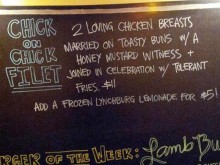 CHICK
ON
CHICK
FILET
2 LOVING CHICKEN BREASTS
MARRIED ON TOASTY BUNS W/ A
HONEY MUSTARD WITNESS +
JOINED IN CELEBRATION W/ TOLERANT
FRIES. $11
ADD A FROZEN LYNCHBURG LEMONADE FOR $5!
OF THE WEEK: Lamb Bu